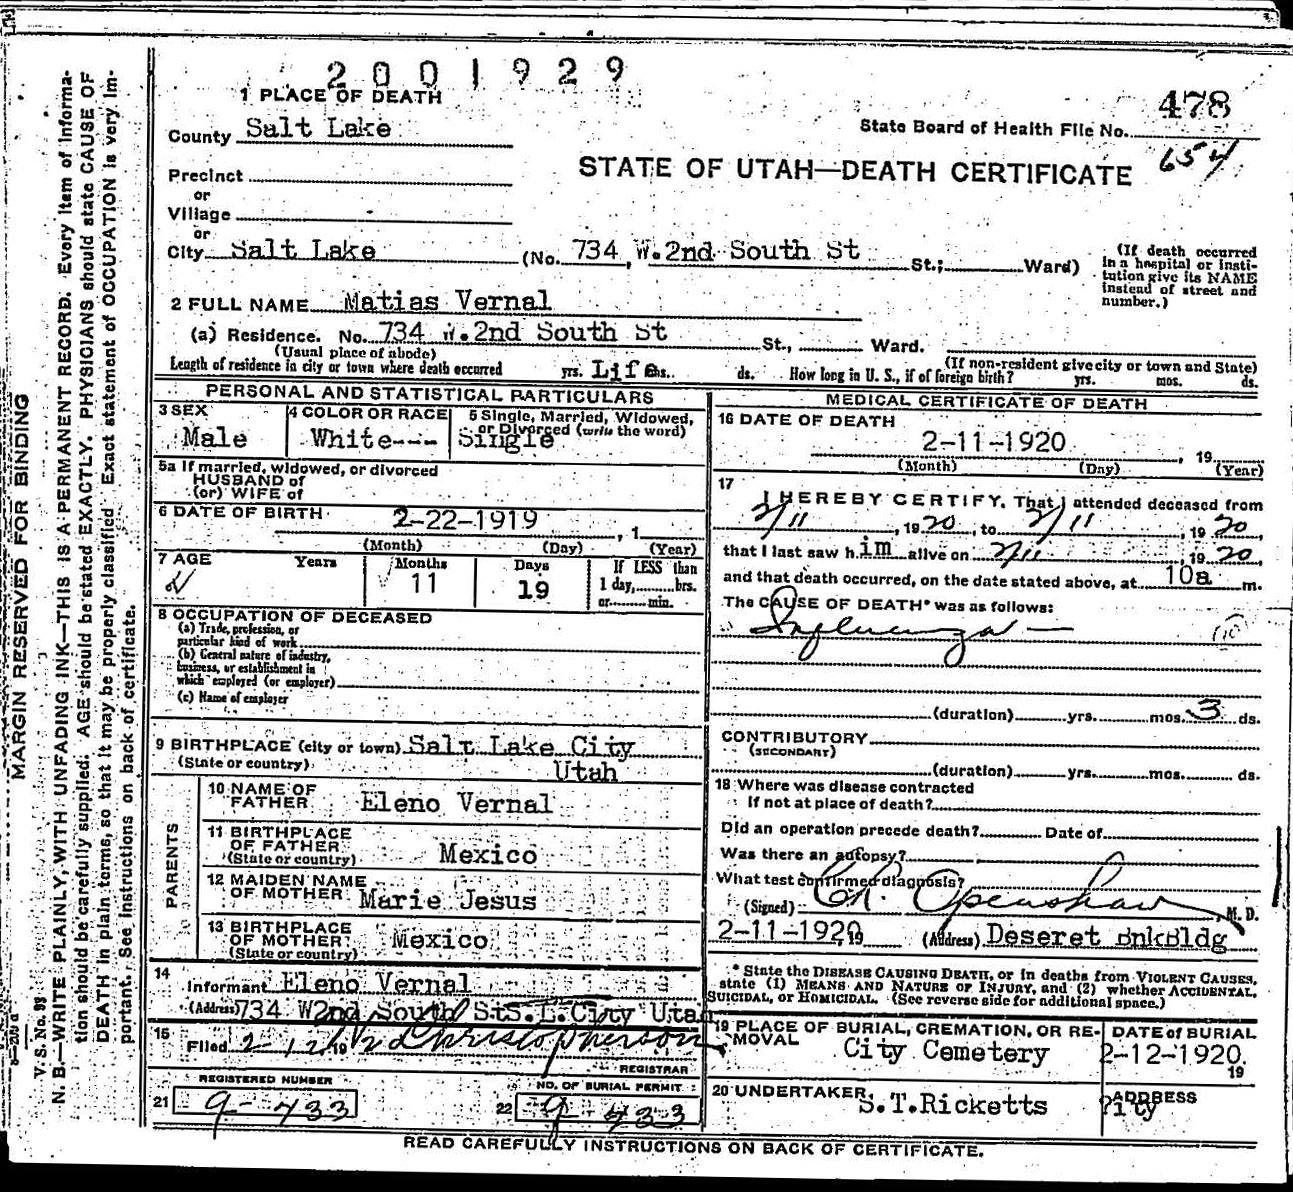 2001929
1 PLACE OF DEATH
478
County Salt Lake
State Board of Health File No.
654
STATE OF UTAH—DEATH CERTIFICATE
Precinct
or
Village
or
City Salt Lake (No. 734, W.2nd South St St.; Ward)
(If death occurred in a hospital or institution give its NAME instead of street and number.)
2 FULL NAME Matias Vernal
(a) Residence. No. 734 W.2nd South St St., Ward.
(Usual place of abode) (If non-resident give city or town and State)
Length of residence in city or town where death occurred yrs. Life mos. ds. How long in U. S., if of foreign birth? yrs. mos. ds.
PERSONAL AND STATISTICAL PARTICULARS
3 SEX Male
4 COLOR OR RACE White---
5 Single, Married, Widowed, or Divorced (write the word) Single
5a If married, widowed, or divorced
HUSBAND of
(or) WIFE of
6 DATE OF BIRTH 2-22-1919, 1
(Month) (Day) (Year)
7 AGE Years Months Days If LESS than
11 19 1 day, hrs.
or min.
8 OCCUPATION OF DECEASED
(a) Trade, profession, or
particular kind of work
(b) General nature of industry,
business, or establishment in
which employed (or employer)
(c) Name of employer
9 BIRTHPLACE (city or town) Salt Lake City
(State or country) Utah
PARENTS
10 NAME OF FATHER Eleno Vernal
11 BIRTHPLACE OF FATHER (State or country) Mexico
12 MAIDEN NAME OF MOTHER Marie Jesus
13 BIRTHPLACE OF MOTHER (State or country) Mexico
14 Informant Eleno Vernal
(Address) 734 W2nd South St S.L.City Utah
15 Filed 2-12 19 Christopherson
REGISTRAR
REGISTERED NUMBER
21 9-433
NO. OF BURIAL PERMIT
22 9-433
MEDICAL CERTIFICATE OF DEATH
16 DATE OF DEATH
2-11-1920, 19
(Month) (Day) (Year)
17 I HEREBY CERTIFY, That I attended deceased from
2/11, 1920, to 2/11, 1920,
that I last saw him alive on 2/11 1920,
and that death occurred, on the date stated above, at 10a m.
The CAUSE OF DEATH* was as follows:
Influenza —
(10)
(duration) yrs. mos. 3 ds.
CONTRIBUTORY
(SECONDARY)
(duration) yrs. mos. ds.
18 Where was disease contracted
if not at place of death?
Did an operation precede death? Date of
Was there an autopsy?
What test confirmed diagnosis?
(Signed) Openshaw, M. D.
2-11-1920, 19 (Address) Deseret BnkBldg
* State the DISEASE CAUSING DEATH, or in deaths from VIOLENT CAUSES,
state (1) MEANS AND NATURE OF INJURY, and (2) whether ACCIDENTAL,
SUICIDAL, or HOMICIDAL. (See reverse side for additional space.)
19 PLACE OF BURIAL, CREMATION, OR REMOVAL City Cemetery
DATE of BURIAL 2-12-1920. 19
20 UNDERTAKER S.T.Ricketts
ADDRESS City
READ CAREFULLY INSTRUCTIONS ON BACK OF CERTIFICATE.
MARGIN RESERVED FOR BINDING
V. S. No. 98
N. B.—WRITE PLAINLY, WITH UNFADING INK—THIS IS A PERMANENT RECORD. Every item of informa-
tion should be carefully supplied. AGE should be stated EXACTLY. PHYSICIANS should state CAUSE OF
DEATH in plain terms, so that it may be properly classified. Exact statement of OCCUPATION is very im-
portant. See instructions on back of certificate.